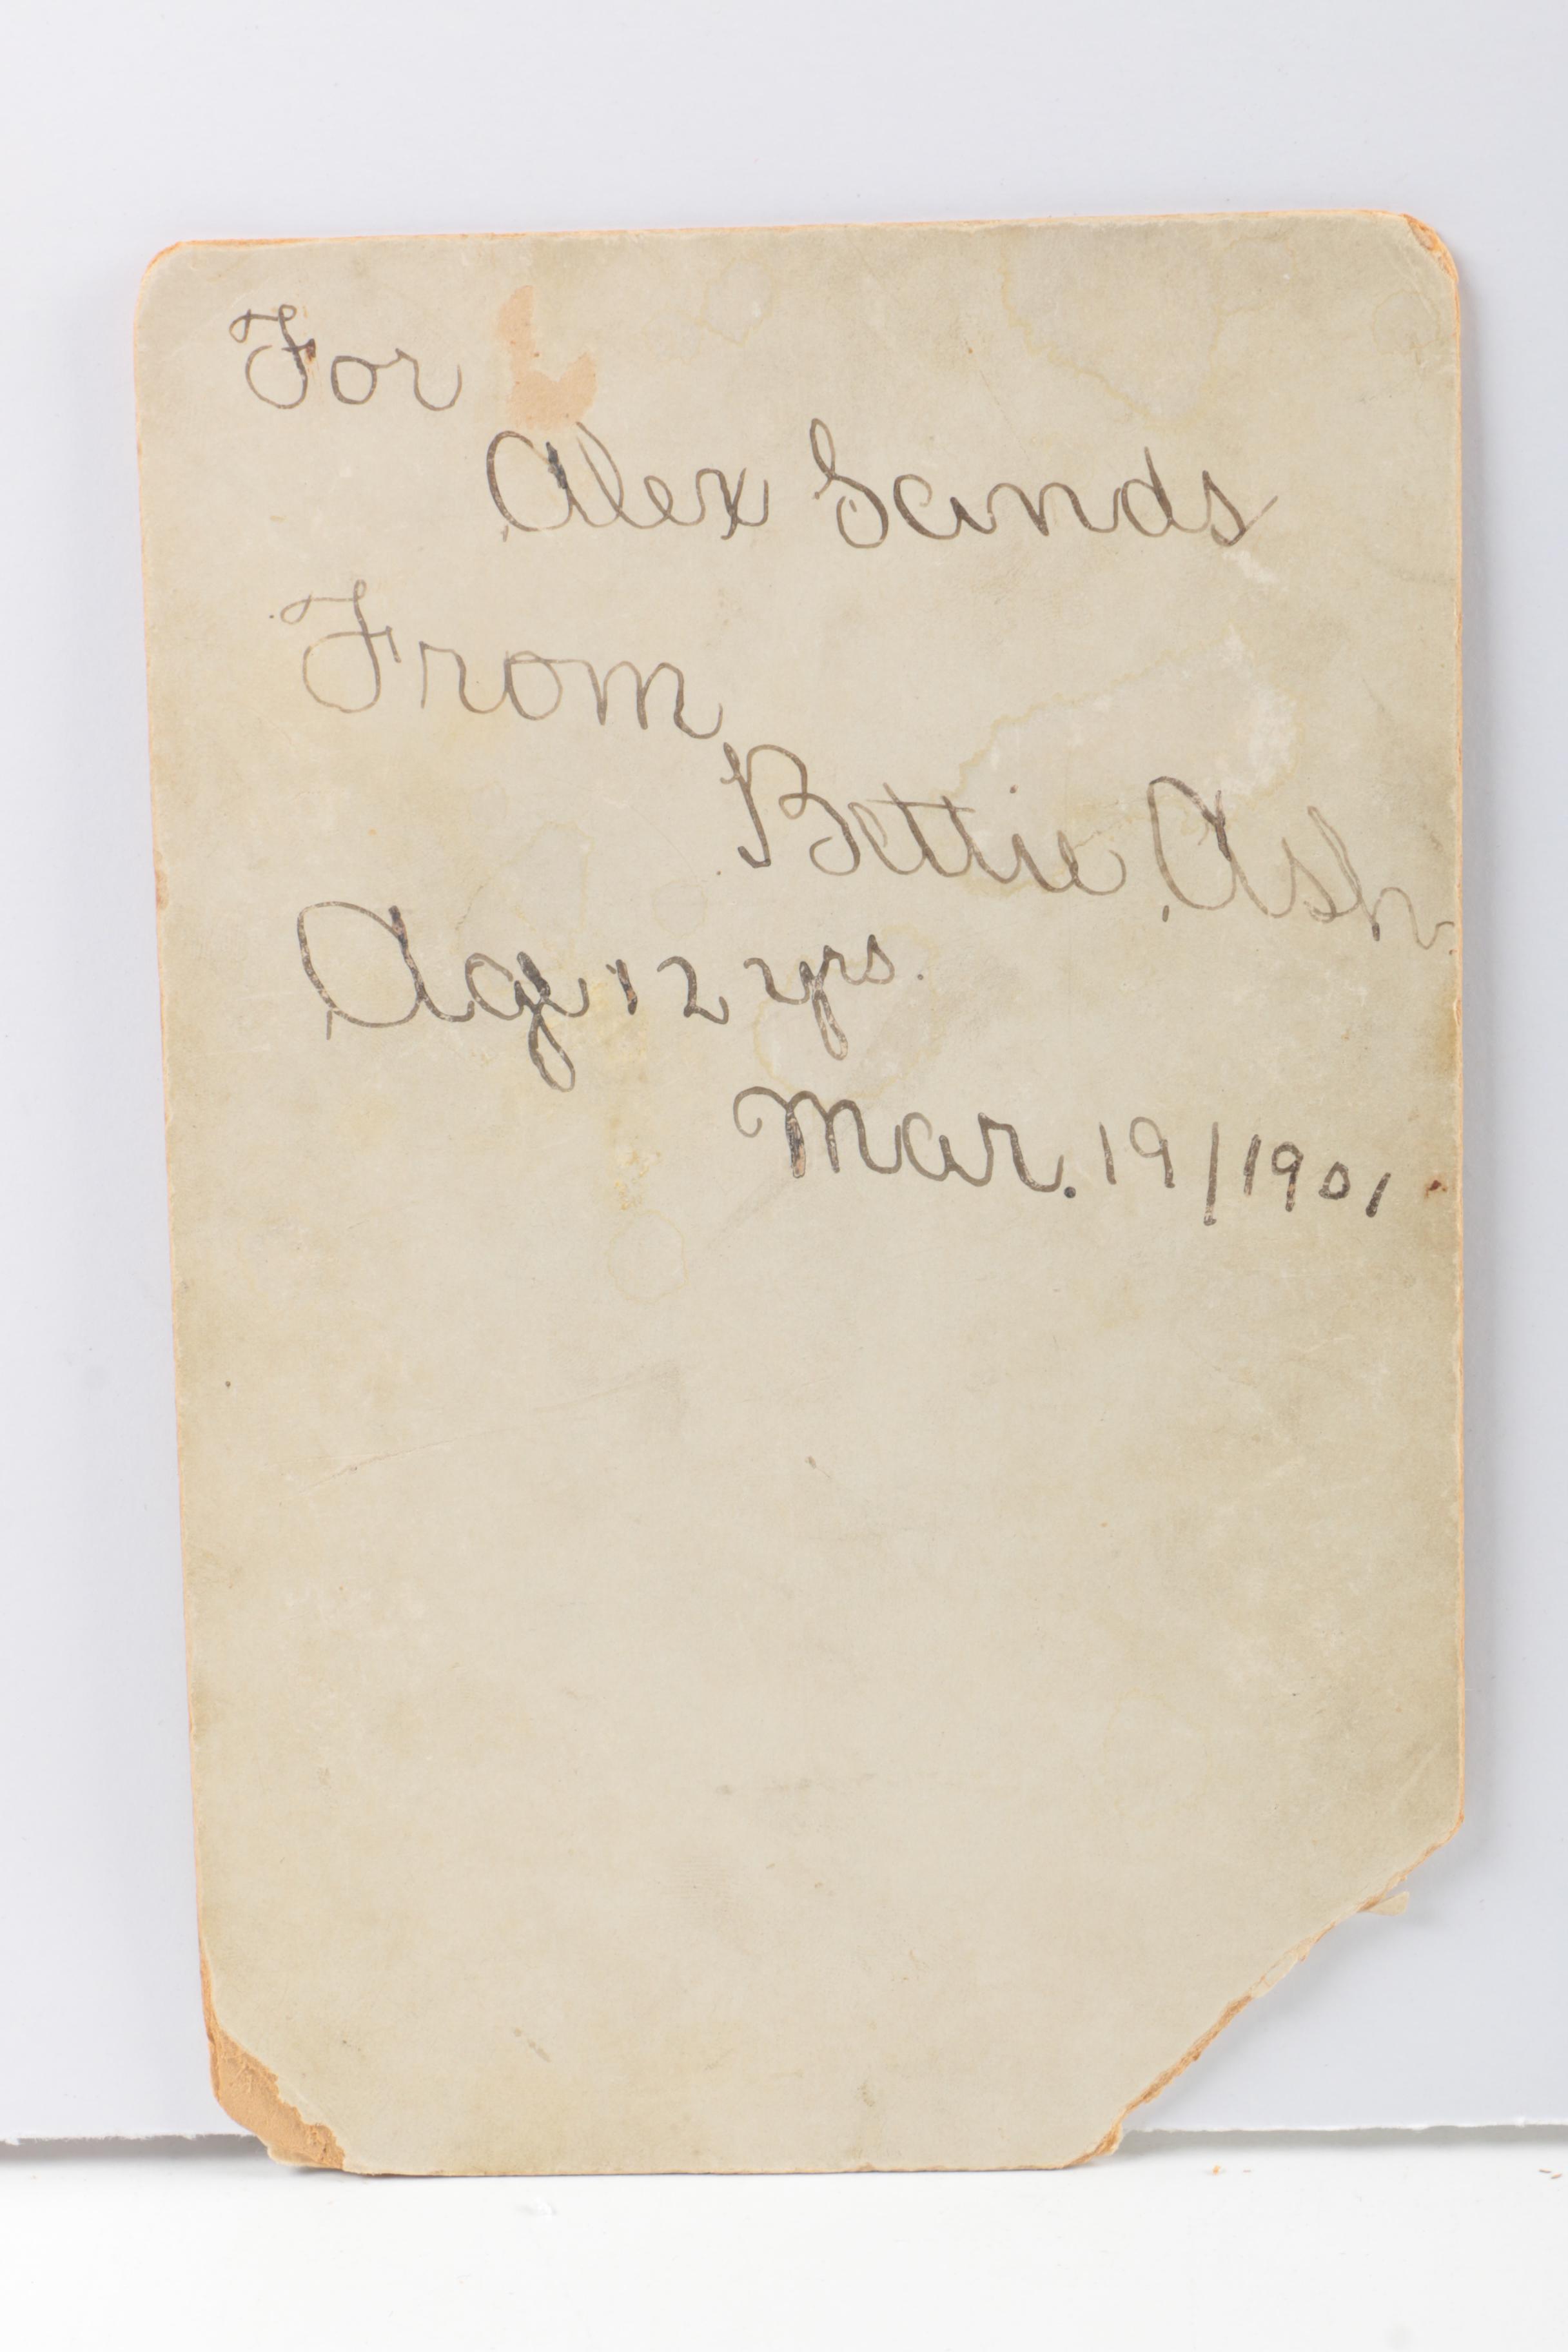 For
Alex Sands
From
Bettie Ash
Age 12 yrs.
Mar. 19/1901